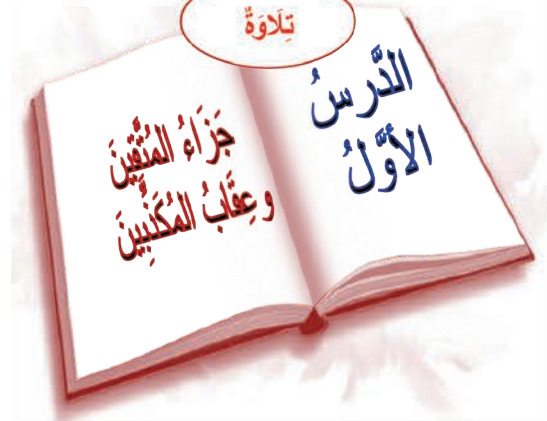 تِلَاوَةٌ
الدَّرسُ
الأَوَّلُ
جَزَاءُ المُتَّقِينَ
وعِقَابُ المُكَذِّبِينَ